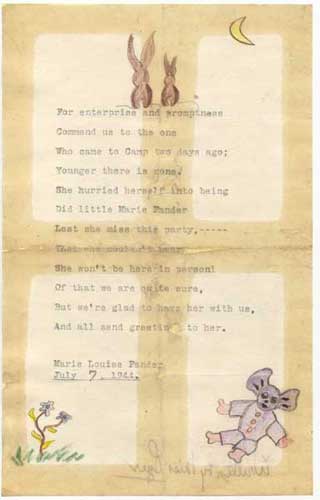 For enterprise and promptness
Commend us to the one
Who came to Camp two days ago;
Younger there is none.
She hurried herself into being
Did little Marie Fander
Lest she miss this party,-----
That she couldn't bear.
She won't be here in person!
Of that we are quite sure,
But we're glad to have her with us,
And all send greeting to her.
Marie Louise Fander
July 7, 1944.
Written by Miss